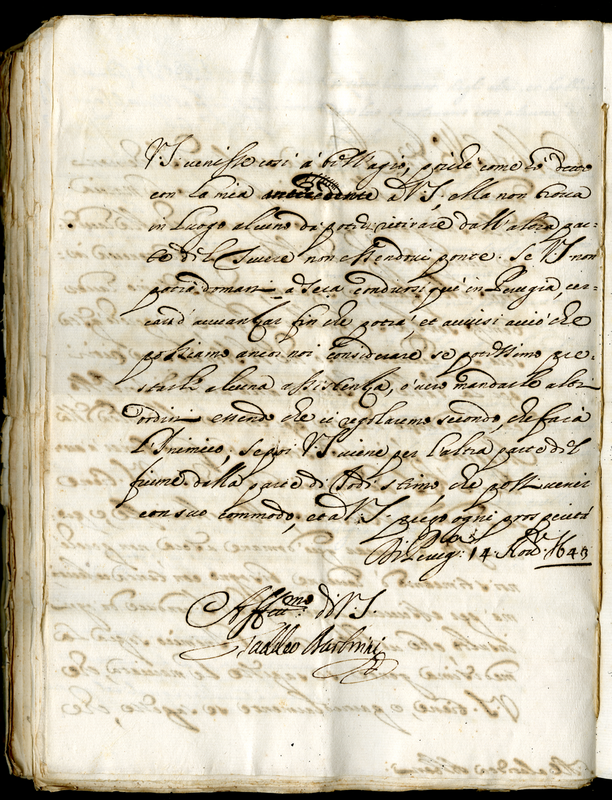 V.S. venisse così à bell'agio, poiche come hò detto
con la mia antecedente à V.S., ella non trova
in luogo alcuno da potersi ritirare dall'altra par-
te del Tevere non essendovi ponte. Se V.S. non
potrà doman à sera condursi quà in Perugia, cer-
cara d'avvanzar fin che potrà, et avvisi acciò che
possiamo ancor noi considerare se potessimo pre-
starli alcuna assistenza, ò vero mandarle altri
ordini essendo che ci regolaremo secondo, che farà
l'Inimico, se poi V.S. viene per l'altra parte del
fiume dalla parte di Todi stimo che possi venir
con suo commodo, et à V.S. prego ogni prosperità
Di Perug.ᵃ 14 Nov.ᵉ 1643
Aff.ᵐᵒ di V.S.
Taddeo Barberini